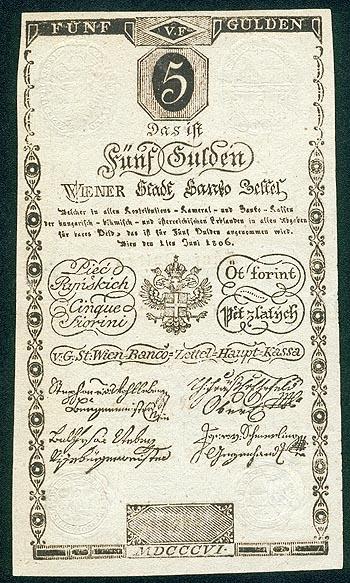 FÜNF V.F GULDEN
5
Das ist
Fünf Gulden
WIENER Stadt Banko Zettel
Welcher in allen Kontributions - Kameral - und Banko - Kassen
der hungarisch - böhmisch - und österreichischen Erblanden in allen Abgaben
für bares Geld, das ist für Fünf Gulden angenommen wird.
Wien den 1ten Juni 1806.
Pięć
Ryńskich
Öt forint
Cinque
Fiorini
Pět zlatých
v. G. St: Wien-Banco-Zettel-Haupt-Kassa
MDCCCVI.